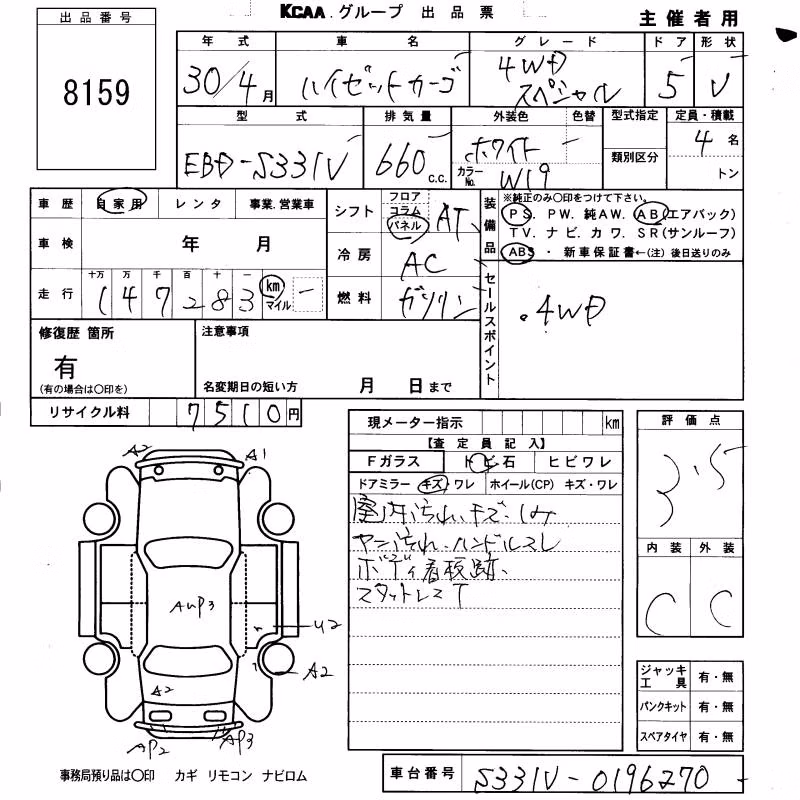 出品番号
8159
KCAA.グループ 出品票
主催者用
年式 車名 グレード ドア 形状
30/4月 ハイゼットカーゴ 4WD スペシャル 5 V
型式 排気量 外装色 色替 型式指定 定員・積載
EBD-S331V 660c.c. ホワイト - 4名
カラーNo. W19 類別区分 トン
車歴 自家用 レンタ 事業.営業車
車検 年 月
走行 十万 万 千 百 十 一
147283 km マイル -
シフト フロア コラム パネル AT
冷房 AC
燃料 ガソリン
装備品 ※純正のみ○印をつけて下さい。
PS. PW. 純AW. AB(エアバック)
TV. ナビ. カワ. SR(サンルーフ)
ABS ・ 新車保証書←(注) 後日送りのみ
セールスポイント
.4WD
修復歴 箇所
有
(有の場合は○印を)
注意事項
名変期日の短い方 月 日まで
リサイクル料 7510円
現メーター指示 km
【査定員記入】
Fガラス トビ石 ヒビワレ
ドアミラー キズ・ワレ ホイール(CP) キズ・ワレ
室内汚れ.キズ.しみ
ヤニ汚れ.ハンドルスレ
ボディ看板跡.
スタットレスT
評価点
3.5
内装 外装
C C
ジャッキ工具 有・無
パンクキット 有・無
スペアタイヤ 有・無
A2 A1
AUP3
U2
A2
A2
AP2 AP3
事務局預り品は○印 カギ リモコン ナビロム
車台番号 S331V-0196270